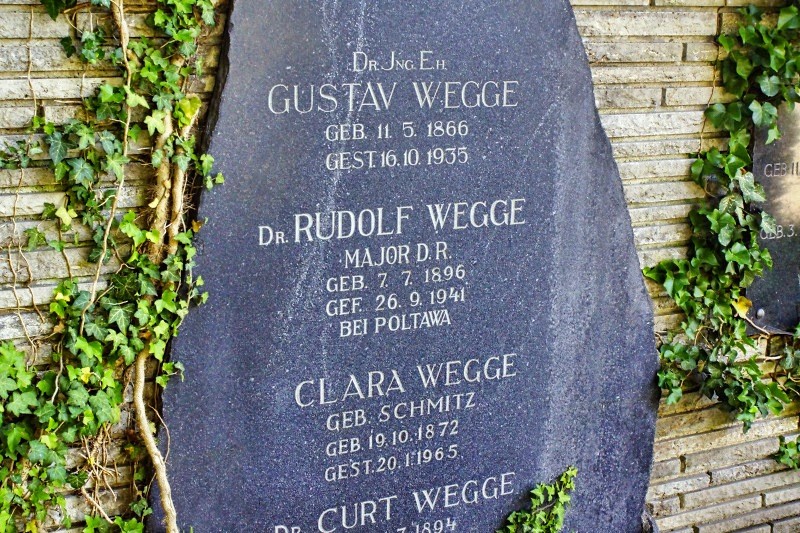 DR. JNG. EH.
GUSTAV WEGGE
GEB. 11. 5. 1866
GEST. 16. 10. 1935
DR. RUDOLF WEGGE
MAJOR D. R.
GEB. 7. 7. 1896
GEF. 26. 9. 1941
BEI POLTAWA
CLARA WEGGE
GEB. SCHMITZ
GEB. 19. 10. 1872
GEST. 20. 1. 1965.
DR. CURT WEGGE
7. 1894
GEB 11
GEB. 3.